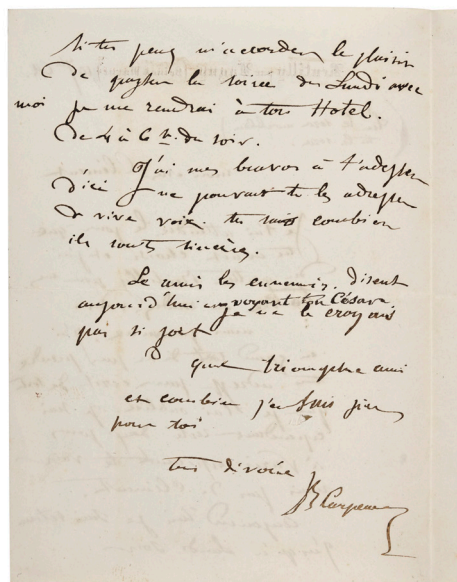 Si tu peux m'accorder le plaisir
de passer la soirée de Lundi avec
moi je me rendrai à ton Hotel.
de 4 à 6 h. du soir.
J'ai mes bravos à t'adresser
d'ici ne pouvant te les adresser
de vive voix. tu sais combien
ils sont sincères.
Le amis les ennemis, disent
aujourd'hui en voyant ton César
je ne le croyais
pas si fort
quel triomphe ami
et combien j'en suis fier
pour toi
ton dévoué
JB Carpeaux